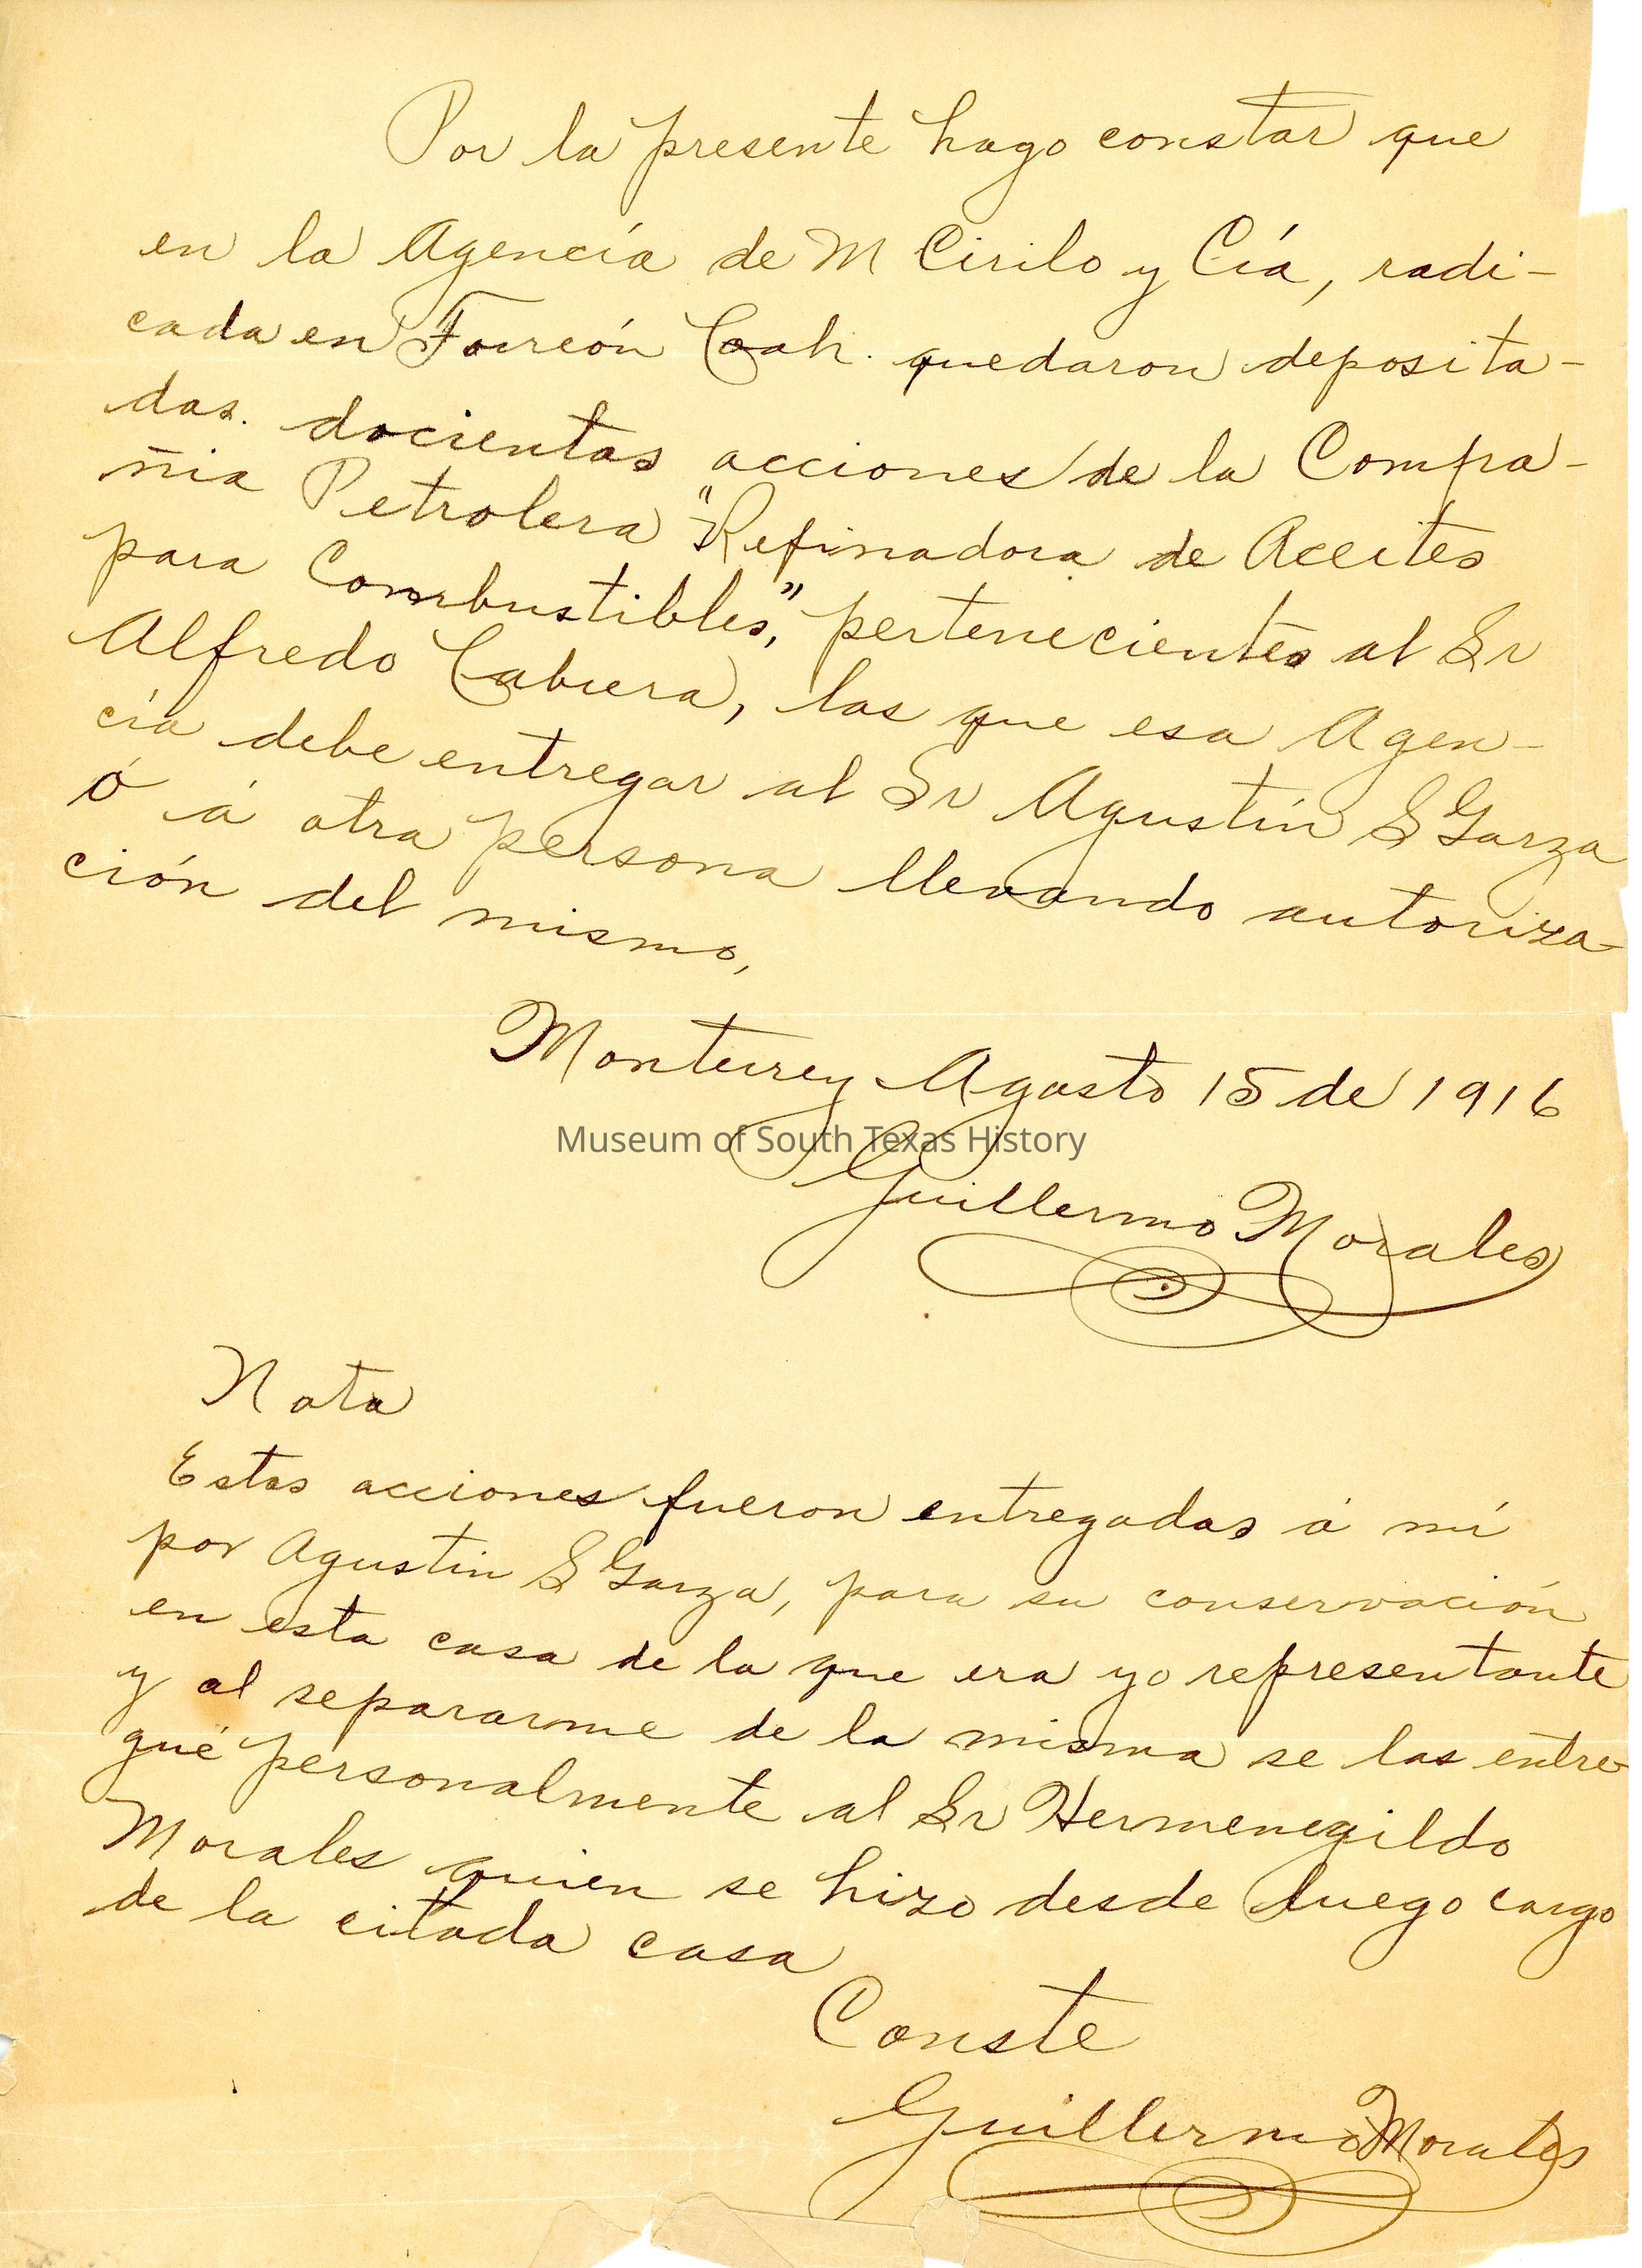 Por la presente hago constar que
en la Agencía de M Cirilo y Cía, radi-
cada en Torreón Coah. quedaron deposita-
das. docientas acciones de la Compa-
ñia Petrolera "Refinadora de Aceites
para Combustibles," pertenecientes al Sr
Alfredo Cabrera, las que esa Agen-
cia debe entregar al Sr Agustín S Garza
ó á otra persona llevando autoriza-
ción del mismo,
Monterrey Agosto 15 de 1916
Museum of South Texas History
Guillermo Morales
Nota
Estas acciones fueron entregadas á mí
por Agustin S Garza, para su conservación
en esta casa de la que era yo representante
y al separarme de la misma se las entre-
gué personalmente al Sr Hermenegildo
Morales quien se hizo desde luego cargo
de la citada casa
Conste
Guillermo Morales